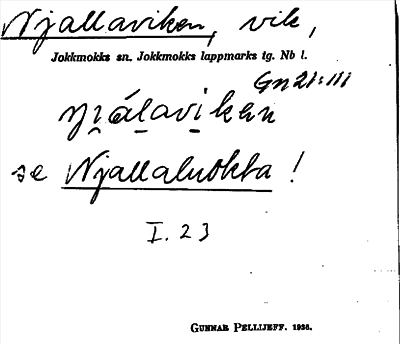 Njallaviken, vik,
Jokkmokks sn. Jokkmokks lappmarks tg. Nb l.
Gn 21:111
ni̯álaviken
se Njallaluokta!
I. 23
GUNNAR PELLIJEFF. 1936.